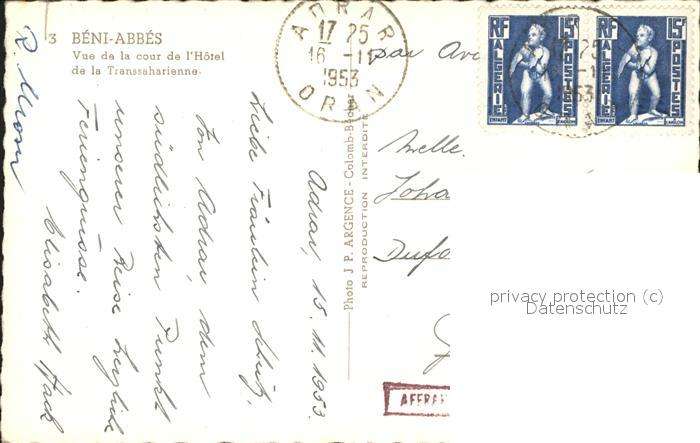 3 BÉNI-ABBÉS
Vue de la cour de l'Hôtel
de la Transsaharienne
Adrar, 15.11.1953
Liebe Fräulein
Von Adrar, dem
südlichsten Punkt
unserer Reise herzliche
Feriengrüsse.
Elisabeth
Photo J P. ARGENCE - Colomb-Béchar
REPRODUCTION INTERDITE
ADRAR
17 25
16 -11
1953
ORAN
par Av
RF 15F
ALGÉRIE POSTES
ENFANT
RF 15F
ALGÉRIE POSTES
ENFANT
25
1953
Melle.
Joha
Dufo
AFFRA
privacy protection (c)
Datenschutz